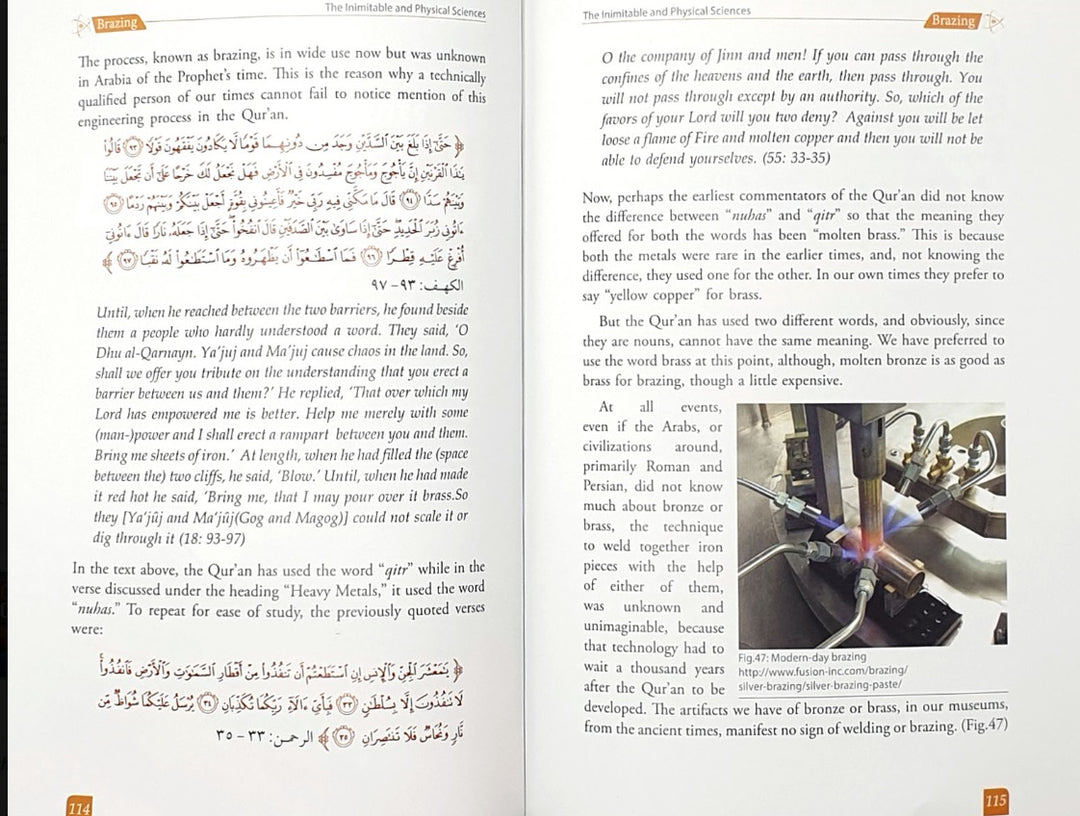 The Inimitable and Physical Sciences
Brazing
The process, known as brazing, is in wide use now but was unknown
in Arabia of the Prophet's time. This is the reason why a technically
qualified person of our times cannot fail to notice mention of this
engineering process in the Qur'an.
﴿ حَتَّىٰٓ إِذَا بَلَغَ بَيْنَ ٱلسَّدَّيْنِ وَجَدَ مِن دُونِهِمَا قَوْمًا لَّا يَكَادُونَ يَفْقَهُونَ قَوْلًا ﴿٩٣﴾ قَالُوا۟
يَٰذَا ٱلْقَرْنَيْنِ إِنَّ يَأْجُوجَ وَمَأْجُوجَ مُفْسِدُونَ فِى ٱلْأَرْضِ فَهَلْ نَجْعَلُ لَكَ خَرْجًا عَلَىٰٓ أَن تَجْعَلَ بَيْنَنَا
وَبَيْنَهُمْ سَدًّا ﴿٩٤﴾ قَالَ مَا مَكَّنِّى فِيهِ رَبِّى خَيْرٌ فَأَعِينُونِى بِقُوَّةٍ أَجْعَلْ بَيْنَكُمْ وَبَيْنَهُمْ رَدْمًا ﴿٩٥﴾
ءَاتُونِى زُبَرَ ٱلْحَدِيدِ حَتَّىٰٓ إِذَا سَاوَىٰ بَيْنَ ٱلصَّدَفَيْنِ قَالَ ٱنفُخُوا۟ حَتَّىٰٓ إِذَا جَعَلَهُۥ نَارًا قَالَ ءَاتُونِىٓ
أُفْرِغْ عَلَيْهِ قِطْرًا ﴿٩٦﴾ فَمَا ٱسْطَٰعُوٓا۟ أَن يَظْهَرُوهُ وَمَا ٱسْتَطَٰعُوا۟ لَهُۥ نَقْبًا ﴿٩٧﴾ ﴾
الكهف: ٩٣- ٩٧
Until, when he reached between the two barriers, he found beside
them a people who hardly understood a word. They said, 'O
Dhu al-Qarnayn. Ya'juj and Ma'juj cause chaos in the land. So,
shall we offer you tribute on the understanding that you erect a
barrier between us and them?' He replied, 'That over which my
Lord has empowered me is better. Help me merely with some
(man-)power and I shall erect a rampart between you and them.
Bring me sheets of iron.' At length, when he had filled the (space
between the) two cliffs, he said, 'Blow.' Until, when he had made
it red hot he said, 'Bring me, that I may pour over it brass.So
they [Ya'jûj and Ma'jûj(Gog and Magog)] could not scale it or
dig through it (18: 93-97)
In the text above, the Qur'an has used the word "qitr" while in the
verse discussed under the heading "Heavy Metals," it used the word
"nuhas." To repeat for ease of study, the previously quoted verses
were:
﴿ يَٰمَعْشَرَ ٱلْجِنِّ وَٱلْإِنسِ إِنِ ٱسْتَطَعْتُمْ أَن تَنفُذُوا۟ مِنْ أَقْطَارِ ٱلسَّمَٰوَٰتِ وَٱلْأَرْضِ فَٱنفُذُوا۟
لَا تَنفُذُونَ إِلَّا بِسُلْطَٰنٍ ﴿٣٣﴾ فَبِأَىِّ ءَالَآءِ رَبِّكُمَا تُكَذِّبَانِ ﴿٣٤﴾ يُرْسَلُ عَلَيْكُمَا شُوَاظٌ مِّن
نَّارٍ وَنُحَاسٌ فَلَا تَنتَصِرَانِ ﴿٣٥﴾ ﴾ الرحمن: ٣٣ - ٣٥
114
The Inimitable and Physical Sciences
Brazing
O the company of Jinn and men! If you can pass through the
confines of the heavens and the earth, then pass through. You
will not pass through except by an authority. So, which of the
favors of your Lord will you two deny? Against you will be let
loose a flame of Fire and molten copper and then you will not be
able to defend yourselves. (55: 33-35)
Now, perhaps the earliest commentators of the Qur'an did not know
the difference between "nuhas" and "qitr" so that the meaning they
offered for both the words has been "molten brass." This is because
both the metals were rare in the earlier times, and, not knowing the
difference, they used one for the other. In our own times they prefer to
say "yellow copper" for brass.
But the Qur'an has used two different words, and obviously, since
they are nouns, cannot have the same meaning. We have preferred to
use the word brass at this point, although, molten bronze is as good as
brass for brazing, though a little expensive.
At all events,
even if the Arabs, or
civilizations around,
primarily Roman and
Persian, did not know
much about bronze or
brass, the technique
to weld together iron
pieces with the help
of either of them,
was unknown and
unimaginable, because
that technology had to
wait a thousand years
after the Qur'an to be
developed. The artifacts we have of bronze or brass, in our museums,
from the ancient times, manifest no sign of welding or brazing. (Fig.47)
Fig.47: Modern-day brazing
http://www.fusion-inc.com/brazing/
silver-brazing/silver-brazing-paste/
115